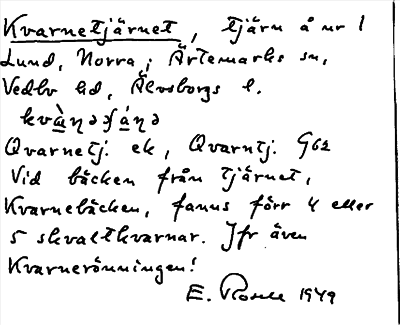 Kvarnetjärnet, tjärn å nr 1
Lund, Norra, Ärtemarks sn,
Vedbo hd, Älvsborgs l.
kvὰηəʃάηə
Qvarnetj. ek, Qvarntj. G62
Vid bäcken från tjärnet,
Kvarnebäcken, fanns förr 4 eller
5 skvaltkvarnar. Jfr även
Kvarnerönningen!
E. 1949